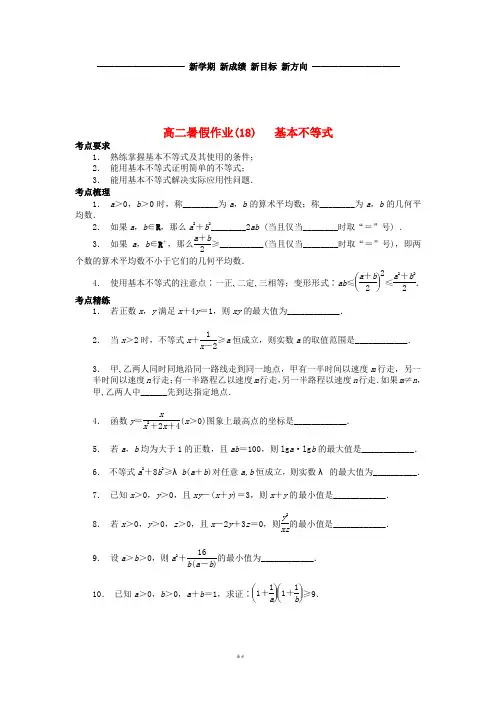 ——————————  新学期 新成绩 新目标 新方向  ——————————
高二暑假作业(18)   基本不等式
考点要求
1． 熟练掌握基本不等式及其使用的条件；
2． 能用基本不等式证明简单的不等式；
3． 能用基本不等式解决实际应用性问题．
考点梳理
1． a＞0，b＞0时，称________为a，b的算术平均数；称________为a，b的几何平
均数．
2． 如果a，b∈R，那么a²＋b²________2ab (当且仅当________时取“＝”号)．
3． 如果a，b∈R⁺，那么(a＋b)/2≥__________(当且仅当________时取“＝”号)，即两
个数的算术平均数不小于它们的几何平均数．
4． 使用基本不等式的注意点：一正,二定,三相等；变形形式：ab≤((a＋b)/2)²≤(a²＋b²)/2．
考点精练
1． 若正数x，y满足x＋4y＝1，则xy的最大值为____________．
2． 当x＞2时，不等式x＋1/(x－2)≥a恒成立，则实数a的取值范围是____________．
3． 甲,乙两人同时同地沿同一路线走到同一地点，甲有一半时间以速度m行走，另一
半时间以速度n行走；有一半路程乙以速度m行走，另一半路程以速度n行走．如果m≠n，
甲,乙两人中______先到达指定地点．
4． 函数y＝x/(x²＋2x＋4)(x＞0)图象上最高点的坐标是____________．
5． 若a，b均为大于1的正数，且ab＝100，则lga·lgb的最大值是____________．
6． 不等式a²＋8b²≥λb(a＋b)对任意a,b恒成立，则实数λ 的最大值为__________．
7． 已知x＞0，y＞0，且xy－(x＋y)＝3，则x＋y的最小值是____________．
8． 若x＞0，y＞0，z＞0，且x－2y＋3z＝0，则y²/xz的最小值是____________．
9． 设a＞b＞0，则a²＋16/(b(a－b))的最小值为____________．
10． 已知a＞0，b＞0，a＋b＝1，求证：(1＋1/a)(1＋1/b)≥9．